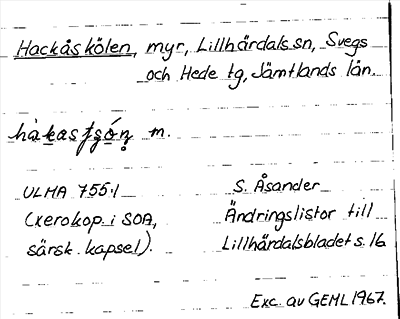 Hackåskölen, myr, Lillhärdals sn, Svegs
och Hede tg, Jämtlands län.
m.
ULMA 755:1
(xerokop. i SOA,
särsk. kapsel).
S. Åsander
Ändringslistor till
Lillhärdalsbladet s. 16
Exc. av GEML 1967.